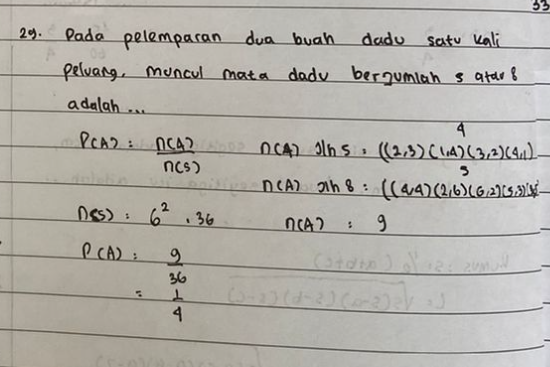 33
29. Pada pelemparan dua buah dadu satu kali
peluang, muncul mata dadu berjumlah 5 atau 8
adalah ...
4
P(A) : n(A) / n(S) n(A) jlh 5 : ((2,3) (1,4) (3,2) (4,1)
5
n(A) jlh 8 : ((4,4) (2,6) (6,2) (5,3)
n(S) : 6² . 36 n(A) : 9
P(A) : 9 / 36
= 1 / 4